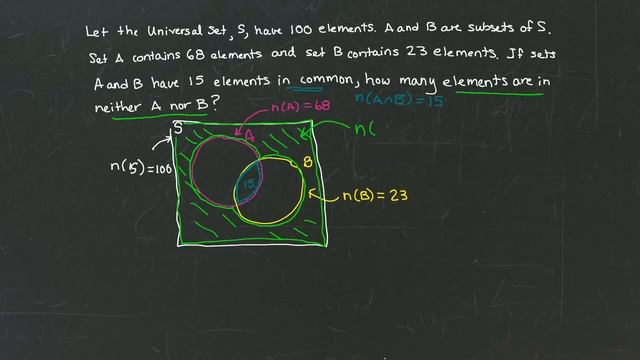 Let the Universal Set, S, have 100 elements. A and B are subsets of S.
Set A contains 68 elements and set B contains 23 elements. If sets
A and B have 15 elements in common, how many elements are in
neither A nor B?
n(A) = 68
n(A∩B) = 15
S
A
n(
n(15) = 100
B
15
n(B) = 23